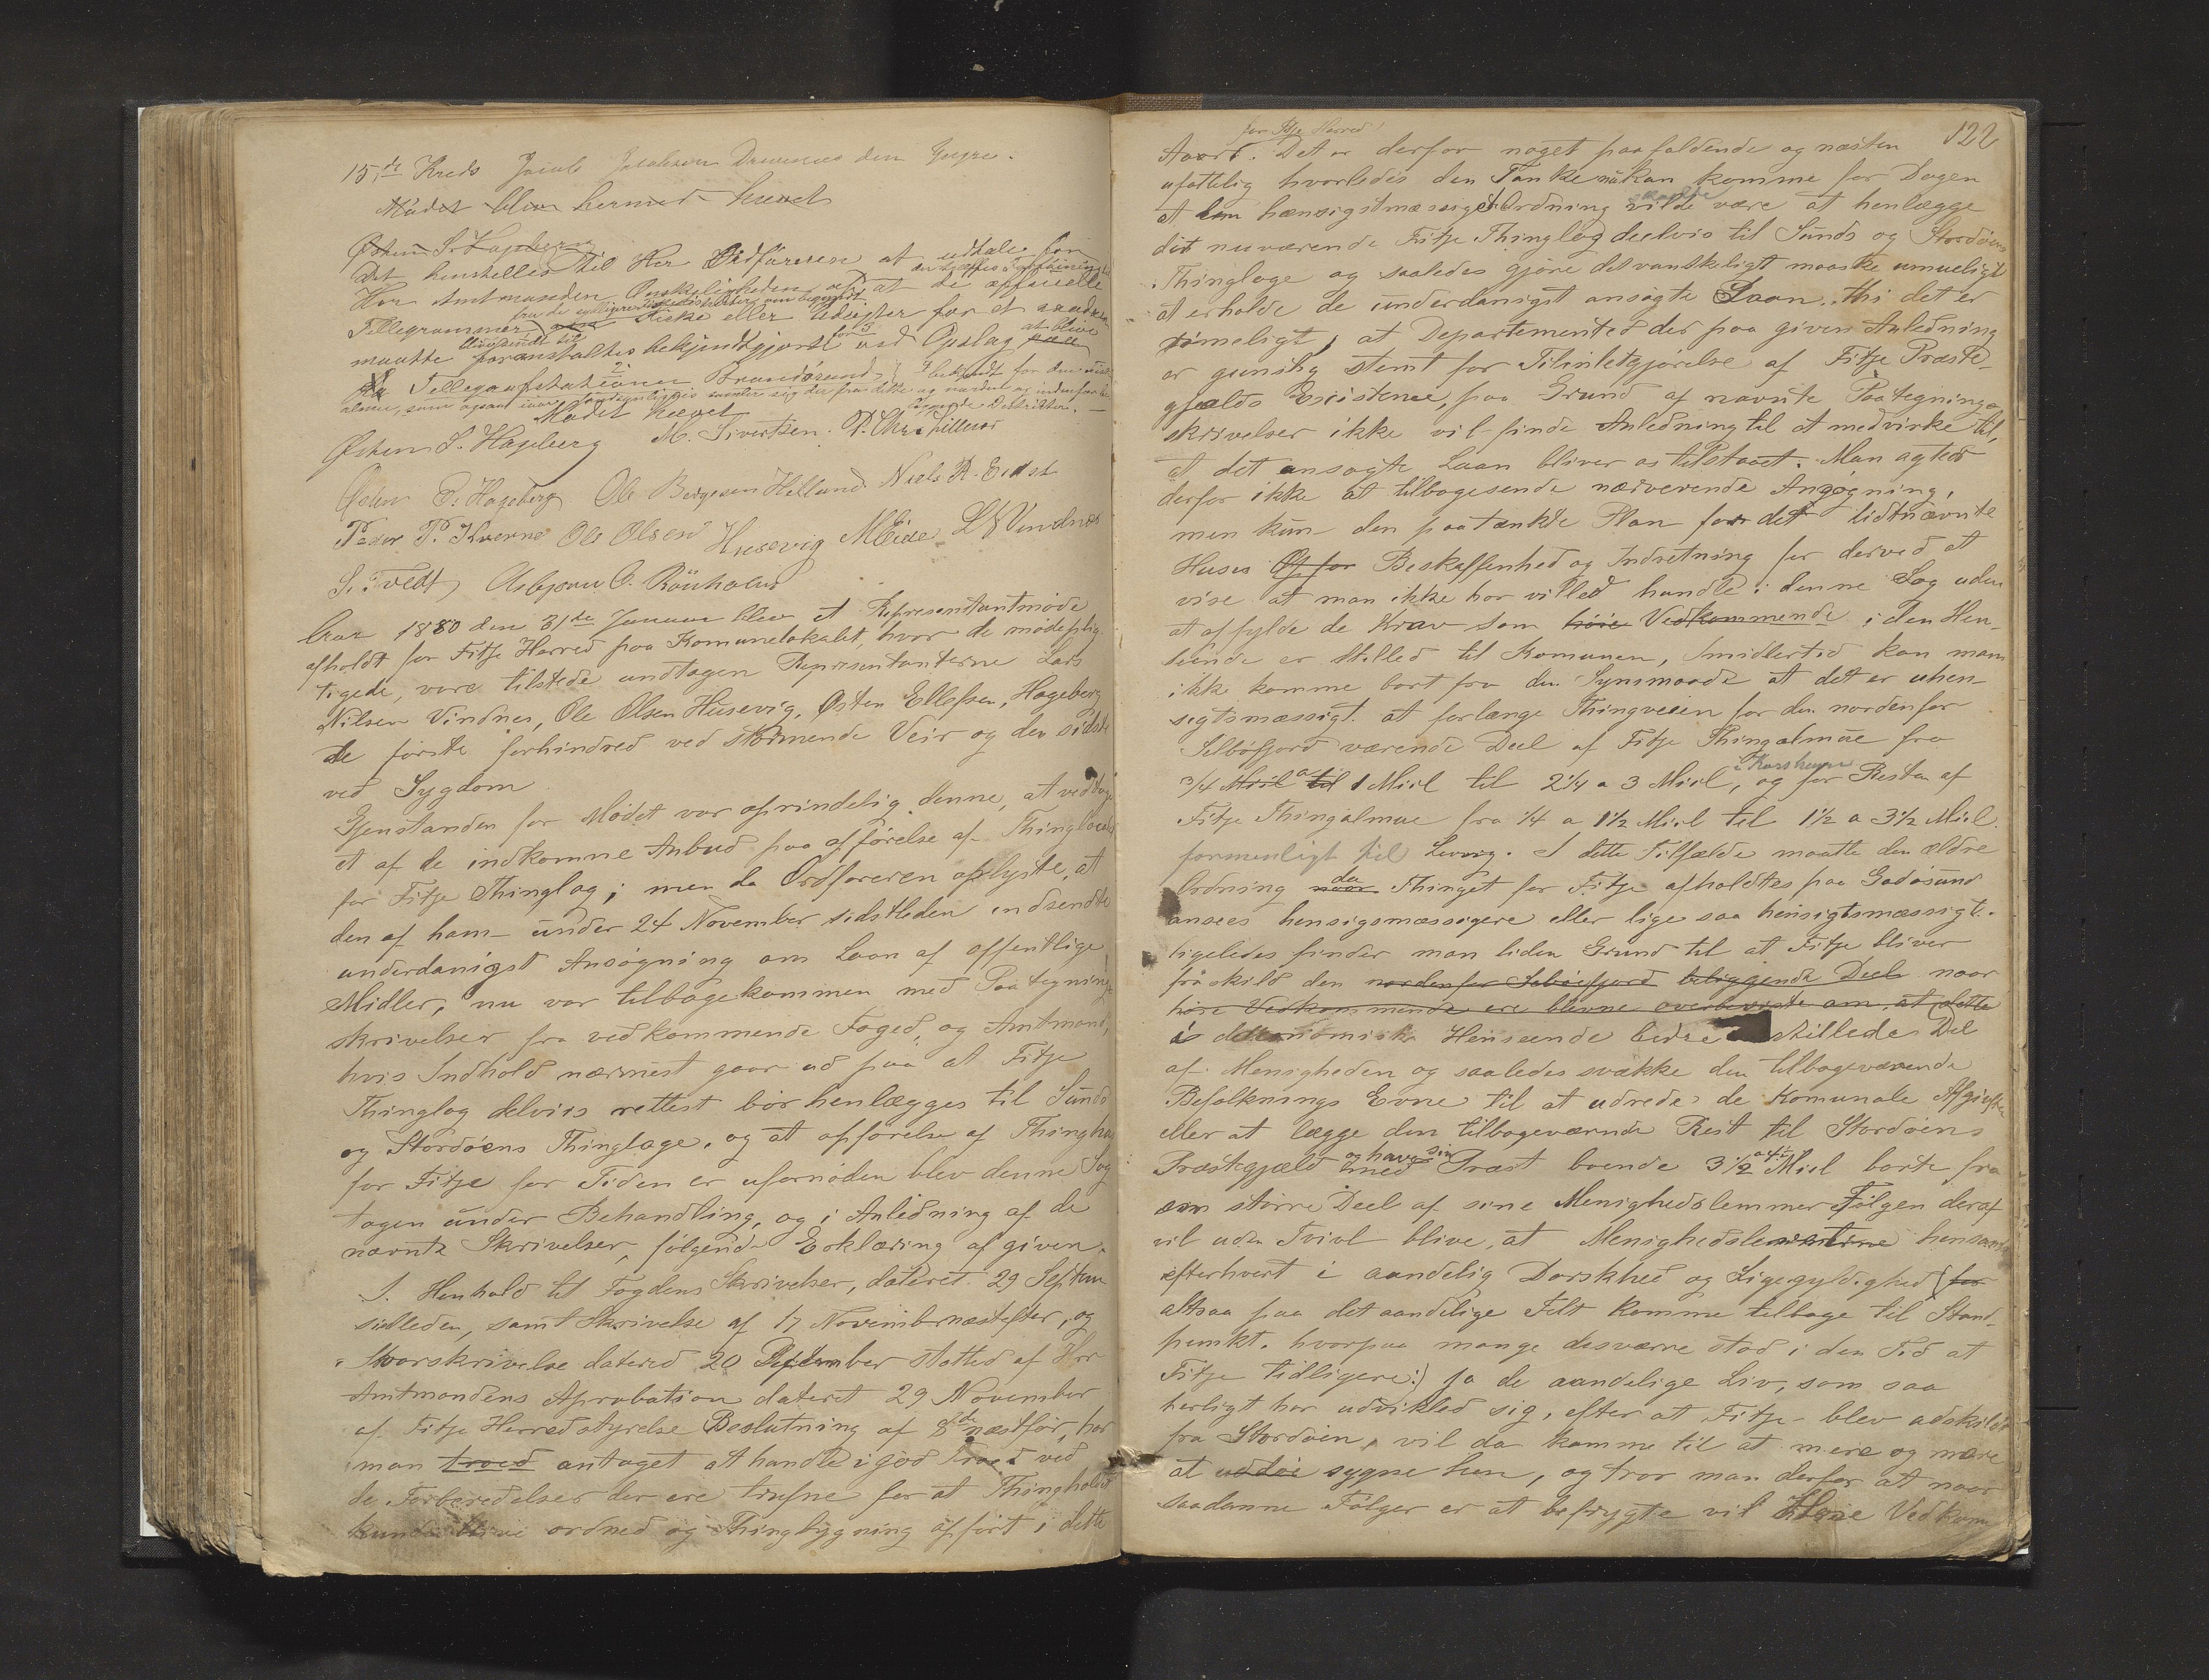 15,de Kreds Jacob Jacobsen Drivenes den Yngre.
Mødet blev hermed hævet
Østen S. Hageberg
Det henstilles til Her Ordføreren at udtale for
Her Amtmanden Ønskeligheden af at de
Tellegrammer fra de om Fiske eller udsigter for et
maatte foranstaltes bekjendtgjort ved Opslag at blive
Tellegrafstationen Brandesund bekjendt for den
almue, som
Mødet hævet
Østen S. Hageberg M. Sivertsen. P. Chr.
Østen P. Hageberg Ole Børgesen Helland Niels R. Eidst
Peder P. Kverne Ole Olsen Husevig M Eide L N Vindnes
S. Tvedt Asbjørn O. Rønholm
Aar 1880 den 31te Januar blev et Representantmøde
afholdt for Fitje Herred paa Komunelokalet, hvor de mødeplig-
tigede, vare tilstede undtagen Representanterne Lars
Nilsen Vindnes, Ole Olsen Husevig, Østen Ellefsen, Hageberg
de første forhindred ved stormende Veir og den sidste
ved Sygdom
Gjenstanden for Mødet var oprindelig denne, at vedtage
et af de indkomne Anbud paa opførelse af Thinglocale
for Fitje Thinglag; men da Ordføreren oplyste, at
den af ham under 24 November sidstleden indsendte
underdanigst Ansøgning om Laan af offentlige
Midler, nu var tilbagekommen med Paategnings
skrivelser fra vedkommende Foged, og Amtmand,
hvis Indhold nærmest gaar ud paa at Fitje
Thinglag delviis rettest bør henlægges til Sunds
og Stordøens Thinglage, og at opførelse af Thinghus
for Fitje for Tiden er ufornøden blev denne Sag
tagen under Behandling, og i Anledning af de
nævnte Skrivelser, følgende Erklæring afgiven.
I. Henhold til Fogdens Skrivelser, dateret 29 Septem
sidtleden, samt Skrivelse af 17 November næstefter, og
Svarskrivelse datered 20 September støtted af Her
Amtmandens Aprobation dateret 29 November
af Fitje Herredstyrelse Beslutning af 8de næstfør, har
man troed antaget at handle i god Troe ved
de Forberedelser der ere trufne for at Thingholdet
kunde blive ordned og Thingbygning opført i dette
122
for Fitje Herred
Aard. Det er derfor noget paafaldende og næsten
ufattelig hvorledes den Tanke nu kan komme for Dagen
at en hænsigstmæssiget Ordning vilde være at henlægge
det nuværende Fitje Thinglag deelvis til Sunds og Stordøens
Thinglage og saaledes gjøre det vanskeligt maaske umueligt
at erholde de underdanigst ansøgte Laan. Thi det er
rimeligt, at Departemented der paa given Anledning
er gunstig stemt for Tilintetgjørelse af Fitje Præste-
gjælds Existense, paa Grund af nævnte Paategnings
skrivelser ikke vil finde Anledning til at medvirke til,
at det ansøgte Laan bliver os tilstaaet. Man agted
derfor ikke at tilbagesende nærverende Ansøgning,
men kun den paatænkte Plan for det tidtnævnte
Huses Op for Beskaffenhed og Indretning for derved at
vise at man ikke har villed handle i denne Sag uden
at opfylde de Krav som høie Vedkommende i den Hen-
seende er stilled til Komunen, Imidlertid kan man
ikke komme bort fra den Synsmaade at det er uhen-
sigtsmæssigt at forlænge Thingveien for den nordenfor
Selbøfjord værende Deel af Fitje Thingalmue fra
3/4 Miil a til 1 Miil til 2 1/4 a 3 Miil, og for Resten af
Fitje Thingalmue fra 1/4 a 1 1/2 Miil til 1 1/2 a 3 1/2 Miil
formentligt til Lervig. I dette Tilfælde maatte den ældre
Ordning naar da Thinget for Fitje afholdtes paa Godøsund
ansees hensigsmæssigere eller lige saa hensigtsmæssigt.
ligeledes finder man liden Grund til at Fitje bliver
fraskild den nordenfor Selbøefjord beliggende Deel naar
høie Vedkommende ere blevne overbeviste om, at dette
i økonomisk Henseende bedre stillede Del
af Menigheden og saaledes svække den tilbageværende
Befolknings Evne til at udrede de Komunale Afgifter
eller at lægge den tilbageværnde Rest til Stordøens
Præstegjæld med og have sin Præst boende 3 1/2 a 4 Miil borte fra
een større Deel af sine Menighedslemmer Følgen deraf
vil uden Tvivl blive, at Menighedslemmerne
efterhvert i aandelig Dorskhed og Ligegyldighed (for
altsaa paa det aandelige Felt komme tilbage til Stand-
punkt, hvorpaa mange desværre stod i den Tid at
Fitje tidligere:) ja de aandelige Liv, som saa
herligt har udvikled sig, efter at Fitje blev adskildt
fra Stordøen, vil da komme til at mere og mere
at uddøe sygne hen, og tror man derfor at naar
saadanne Følger er at befrygte vil Høie Vedkom